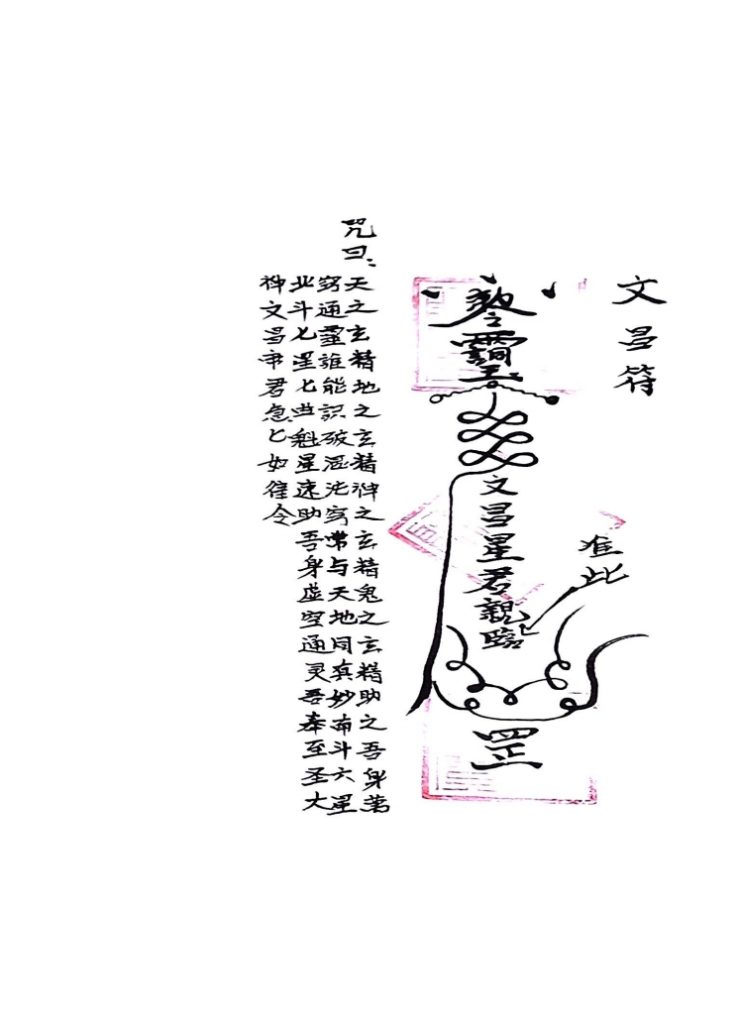 文昌符
敕令
文昌星君親臨
准此
罡
咒曰：
天之玄精地之玄精神之玄精鬼之玄精助之吾身萬
窍通靈誰能識破混沌窍常与天地同真妙南斗六星
北斗七星七曲魁星速助吾身虚空通灵吾奉至圣大
神文昌帝君急匕如律令